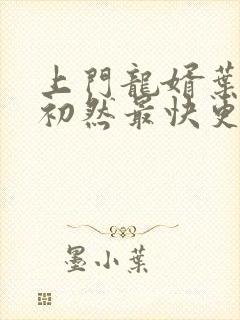 上門龍婿葉
初然最快更
墨小葉